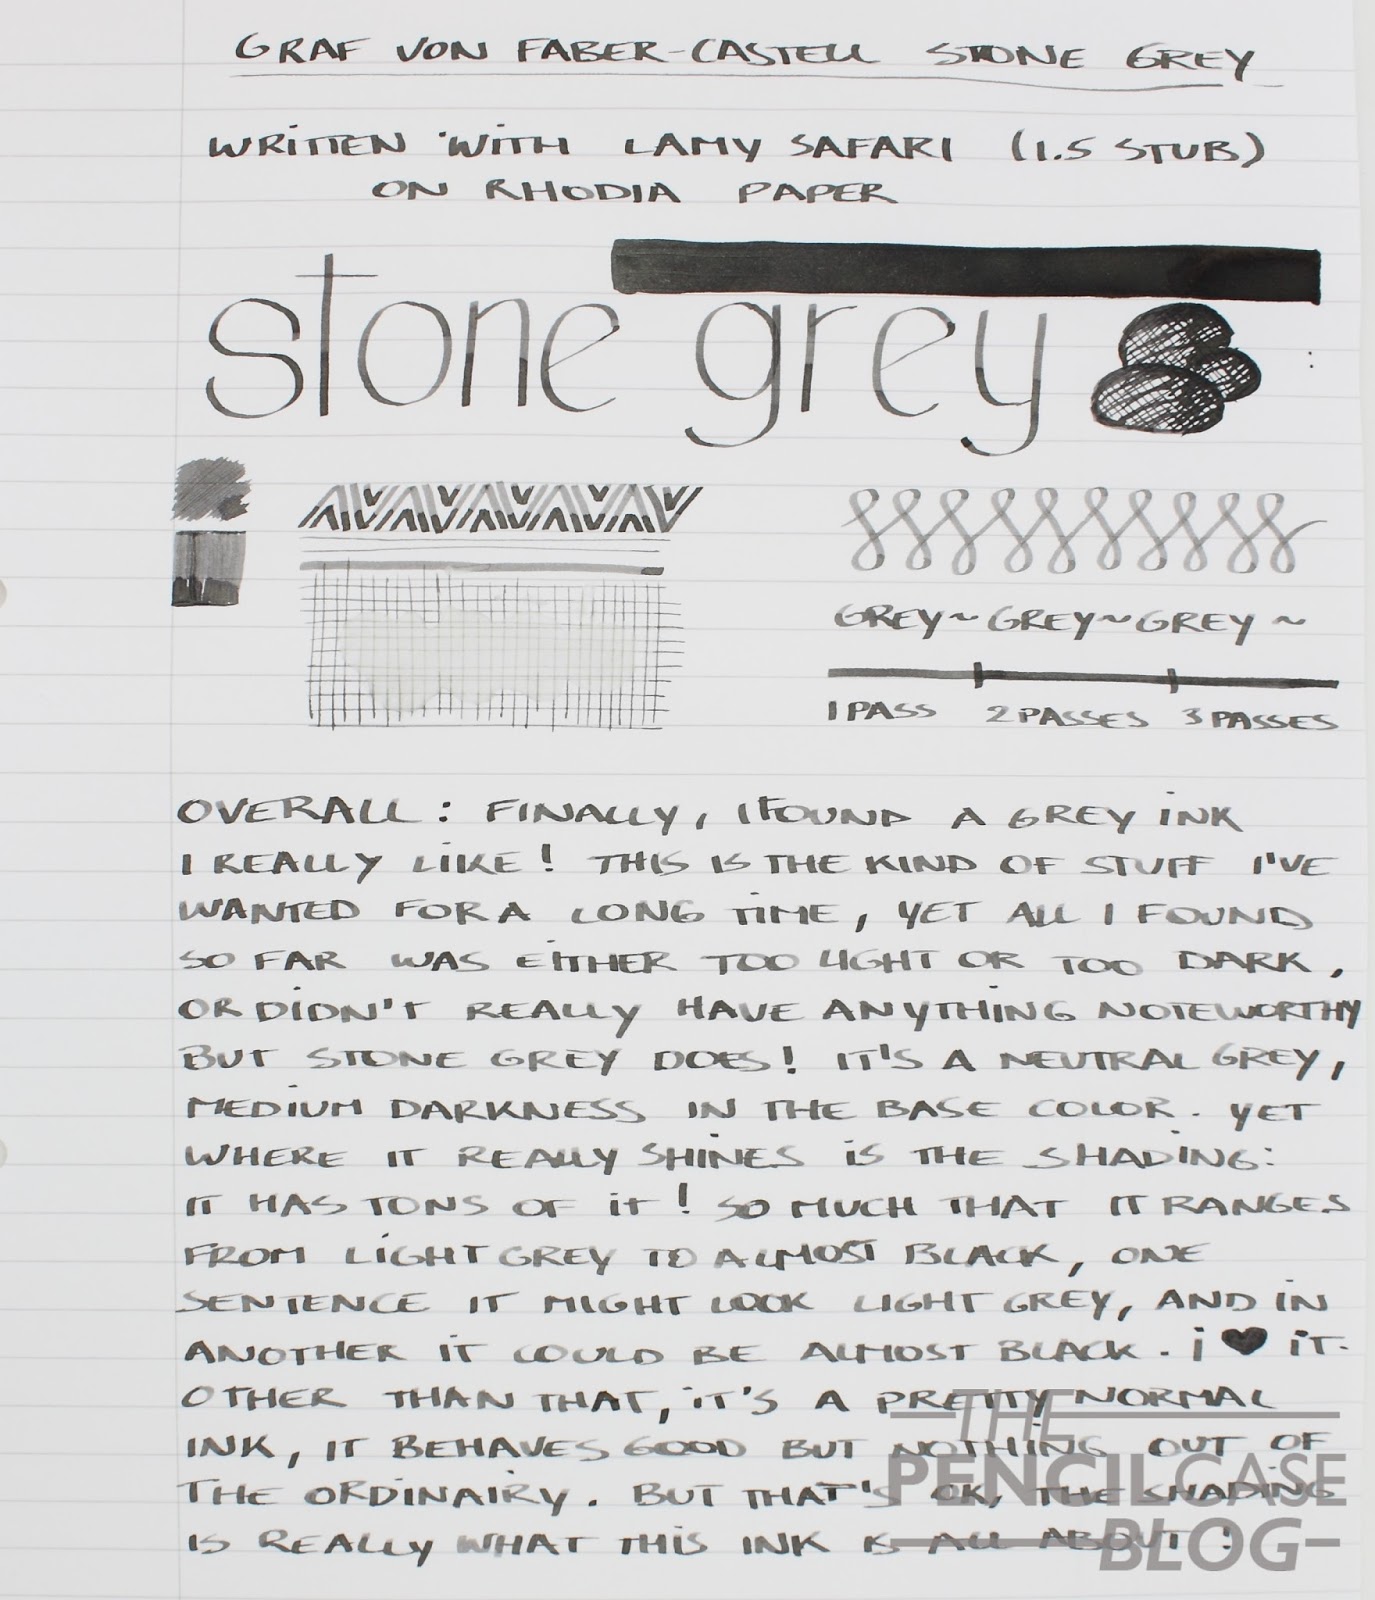 GRAF VON FABER-CASTELL STONE GREY
WRITTEN WITH LAMY SAFARI (1.5 STUB)
ON RHODIA PAPER
stone grey
GREY ~ GREY ~ GREY ~
1 PASS 2 PASSES 3 PASSES
OVERALL : FINALLY, I FOUND A GREY INK
I REALLY LIKE! THIS IS THE KIND OF STUFF I'VE
WANTED FOR A LONG TIME, YET ALL I FOUND
SO FAR WAS EITHER TOO LIGHT OR TOO DARK,
OR DIDN'T REALLY HAVE ANYTHING NOTEWORTHY
BUT STONE GREY DOES! IT'S A NEUTRAL GREY,
MEDIUM DARKNESS IN THE BASE COLOR. YET
WHERE IT REALLY SHINES IS THE SHADING:
IT HAS TONS OF IT! SO MUCH THAT IT RANGES
FROM LIGHT GREY TO ALMOST BLACK, ONE
SENTENCE IT MIGHT LOOK LIGHT GREY, AND IN
ANOTHER IT COULD BE ALMOST BLACK. I ♥ IT.
OTHER THAN THAT, IT'S A PRETTY NORMAL
INK, IT BEHAVES GOOD BUT NOTHING OUT OF
THE ORDINAIRY. BUT THAT'S OK, THE SHADING
IS REALLY WHAT THIS INK IS ALL ABOUT!
THE
PENCILCASE
BLOG